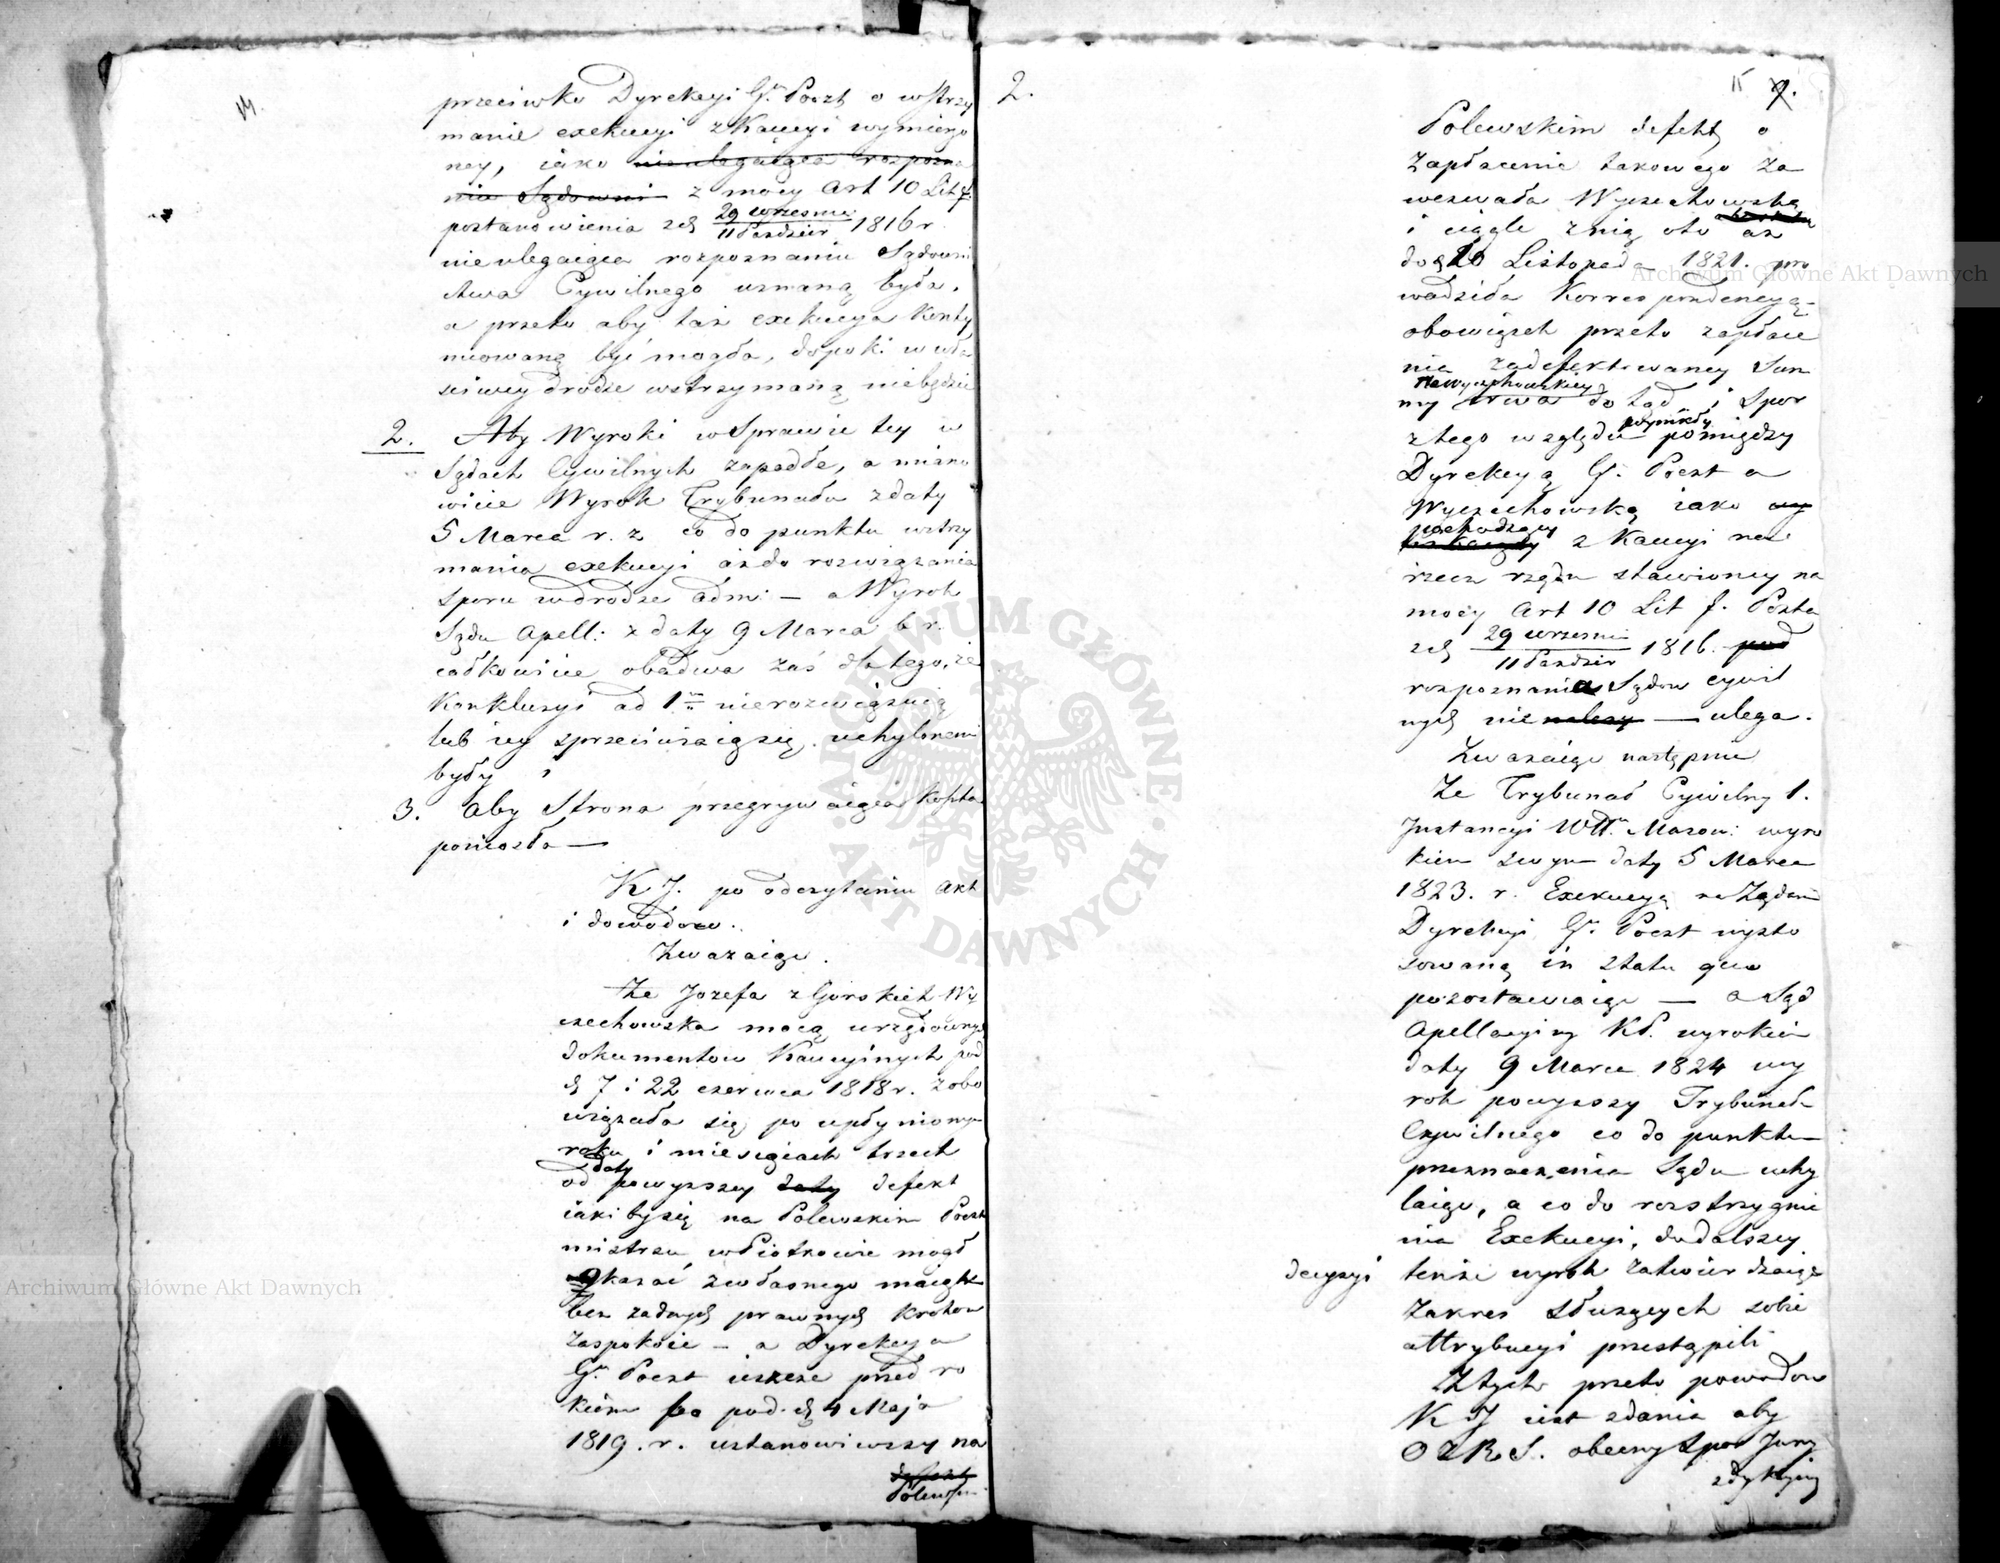 14.
przeciwko Dyrekcyi Gł. Poczt o wstrzy
manie exekucyi z Kaucyi wymierzo
ney, iako nieulegaiąca rozpozna
niu Sądowni z mocy art 10 Lit f.
postanowienia xcia 29 Wrzesnia / 11 Pazdzier 1816 r.
nieulegaiąca rozpoznaniu Sądowni
ctwa Cywilnego uznaną była,
a przeto aby taż exekucya konty
nuowaną być mogła, dopoki w wła
sciwey drodze wstrzymaną niebędzie
2. Aby Wyroki w Sprawie tey w
Sądach Cywilnych zapadłe, a miano
wicie Wyrok Trybunału z daty
5 Marca r. z co do punktu wstrzy
mania exekucyi aż do rozwiązania
sporu w drodze adm: — a Wyrok
Sądu Apell: z daty 9 Marca b r.
całkowicie obadwa zaś dla tego, że
Konkluzyi ad 1m nierozwiązuią
lub iey sprzeciwiaią się uchylonemi
były i
3. aby Strona przegrywaiąca koszta
poniosła —
K J. po odczytaniu akt
i dowodow.
Zważaiąc.
Że Jozefa z Gorskich Wy
czechowska mocą urzędownych
dokumentow Kaucyinych pod
d 7 i 22 czerwca 1818 r. zobo
wiązała się po upłynionym
roku i miesiącach trzech
daty
od powyższey daty defekt
iaki by się na Polewskim Poczt
mistrzu w Piotrkowie mogł
okazać z własnego maiątk
bez żadnych prawnych krokow
zaspokoić — a Dyrekcya
Gł. Poczt ieszcze przed ro
kiem bo pod d. 4 Maja
1819. r. ustanowiwszy na
Polewskim
2.
15
Polewskim defekt, o
zapłacenie takowego za
wezwała Wyczechowską
i ciągle z nią oto aż
do d 20 Listopada 1821. pro
wadziła Korrespondencyą
obowiązek przeto zapłace
nia zadefektowaney Sum
na Wyczechowskiey
my trwa do tąd i Spor
wynikły
z tego względu pomiędzy
Dyrekcyą Gł. Poczt a
Wyczechowską iako
pochodzący
z Kaucyi na
rzecz rządu stawioney na
mocy art 10 Lit f. Posta
xcia 29 wrzesnia / 11 Pazdzier 1816. pod
rozpoznania Sądow cywil
nych nie należy — ulega.
Zważaiąc następnie
Że Trybunał Cywilny 1.
Instancyi Wtt. Mazow: wyro
kiem swym daty 5 Marca
1823. r. Exekucyą na Żądanie
Dyrekcyi Gł. Poczt uzysto
sowaną in statu quo
pozostawiaiąc — a Sąd
Apellacyiny KP. wyrokiem
daty 9 Marca 1824 wy
rok powyższy Trybunału
Cywilnego co do punktu
przeznaczenia Sądu uchy
laiąc, a co do rozstrzygnie
nia Exekucyi, do dalszey
decyzyi tenże wyrok zatwierdzaiąc
zakres służących sobie
attrybucyi przestąpili
Z tych przeto powodow
K J iest zdania aby
OZRS. obecny Spor Jury
zdykcyiny